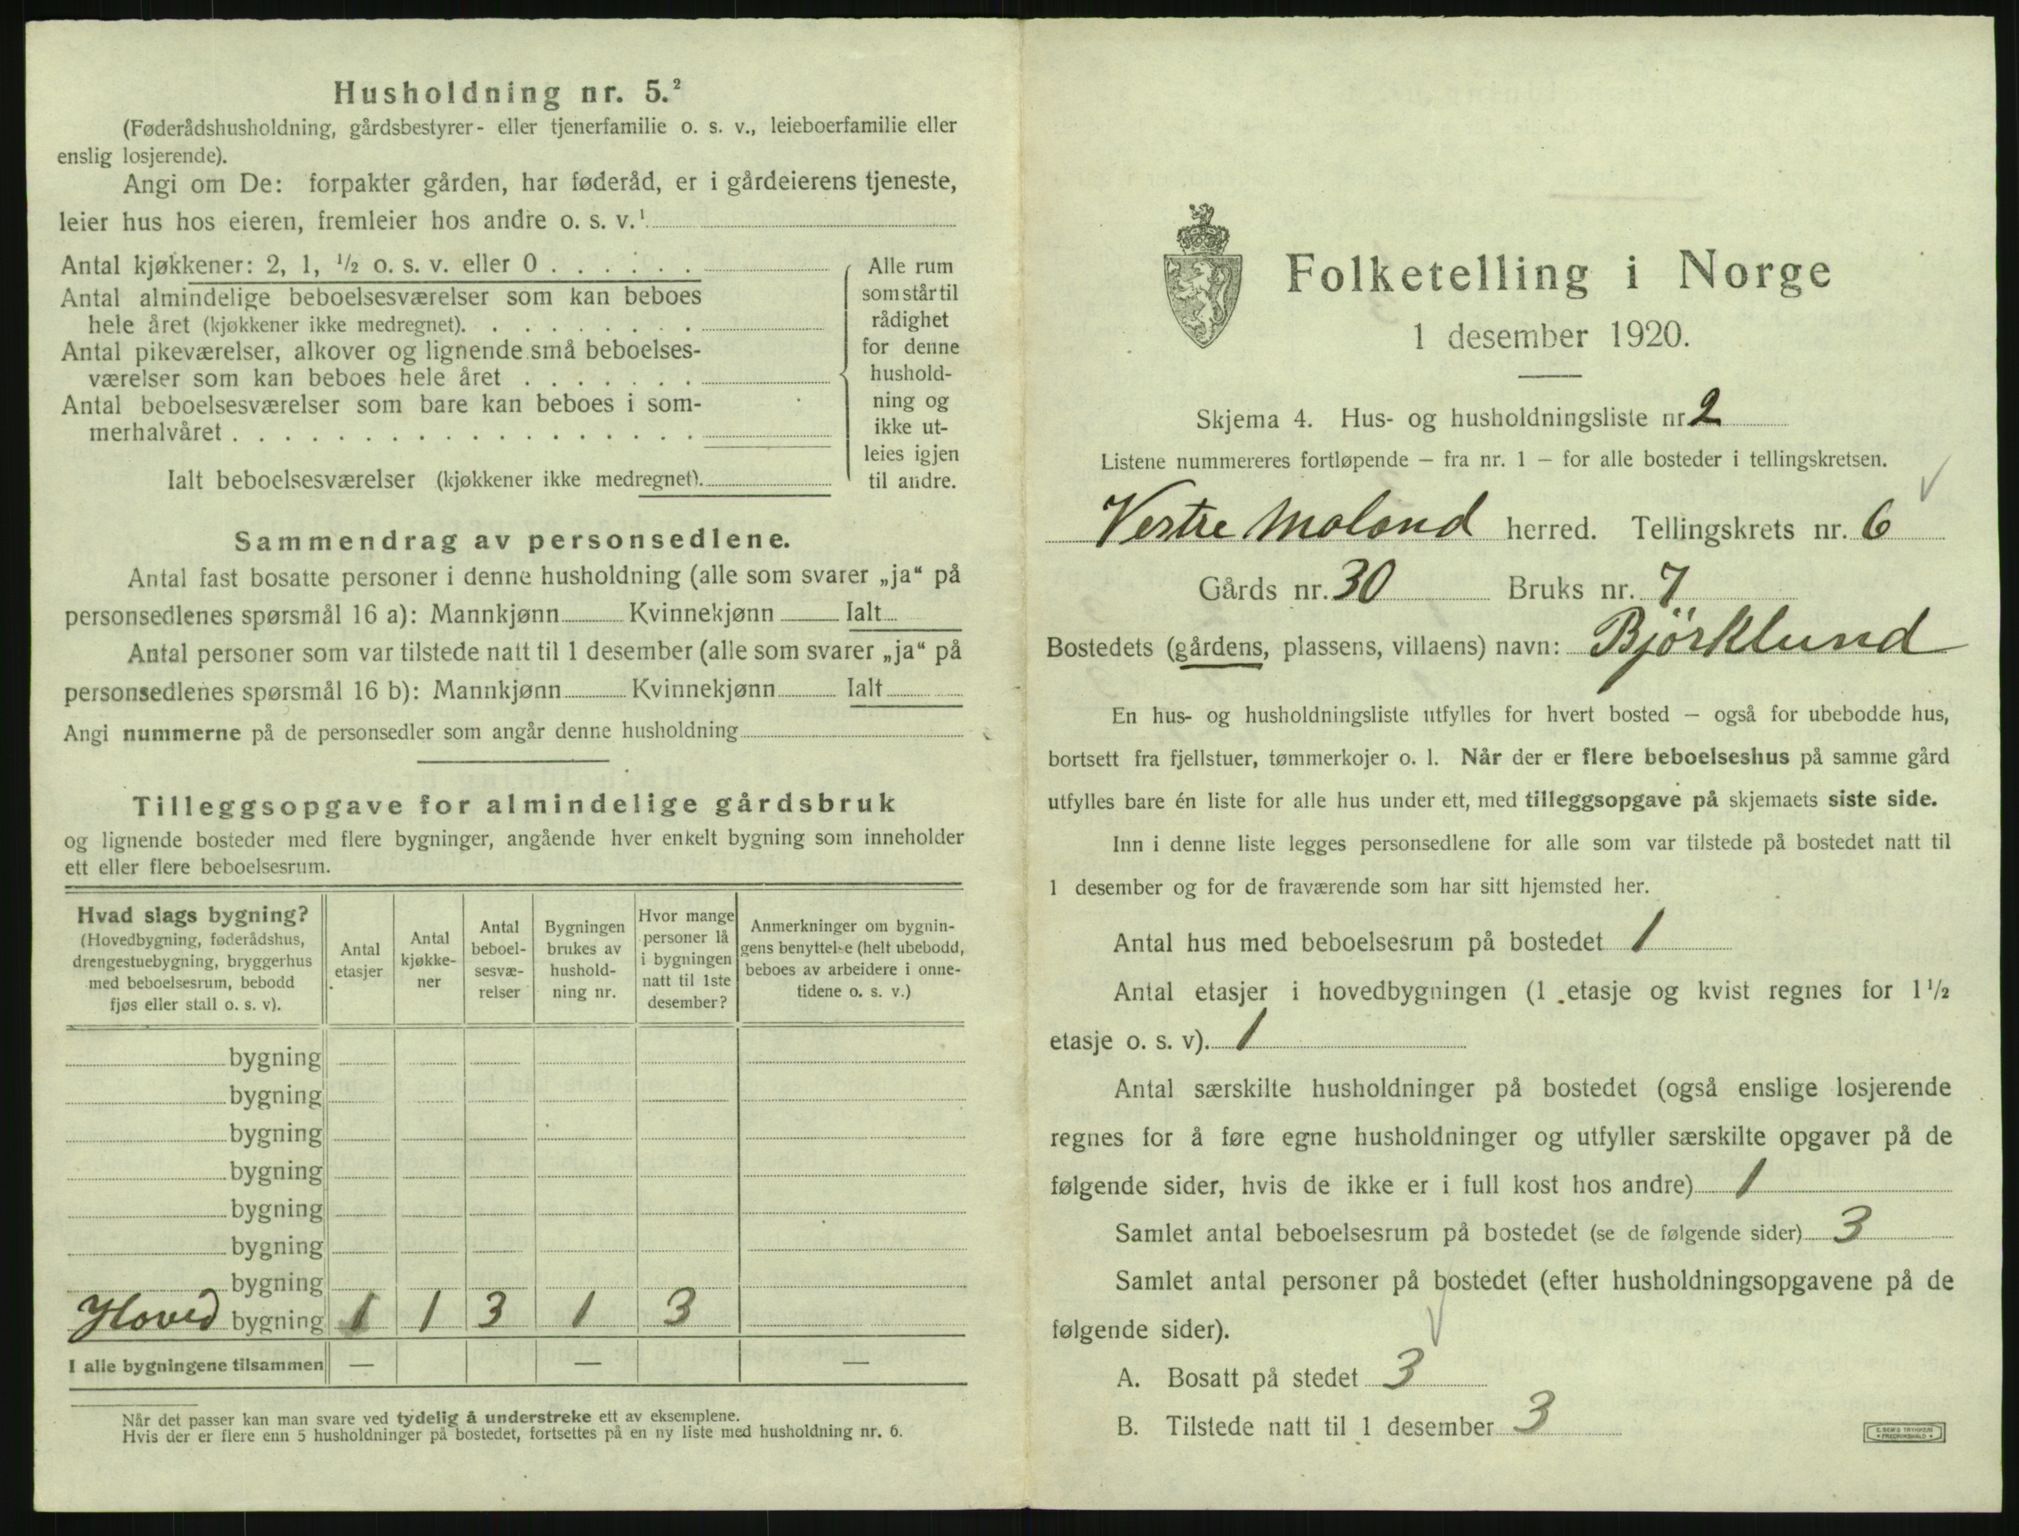 Husholdning nr. 5.²
(Føderådshusholdning, gårdsbestyrer- eller tjenerfamilie o. s. v., leieboerfamilie eller
enslig losjerende).
Angi om De: forpakter gården, har føderåd, er i gårdeierens tjeneste,
leier hus hos eieren, fremleier hos andre o. s. v.¹
Antal kjøkkener: 2, 1, ¹/₂ o. s. v. eller 0 . . . . . .
Antal almindelige beboelsesværelser som kan beboes
hele året (kjøkkener ikke medregnet). . . . . . . . .
Antal pikeværelser, alkover og lignende små beboelses-
værelser som kan beboes hele året . . . . . . .
Antal beboelsesværelser som bare kan beboes i som-
merhalvåret . . . . . . . . . . . . . . . . . .
Ialt beboelsesværelser (kjøkkener ikke medregnet).
Alle rum
som står til
rådighet
for denne
hushold-
ning og
ikke ut-
leies igjen
til andre.
Sammendrag av personsedlene.
Antal fast bosatte personer i denne husholdning (alle som svarer „ja“ på
personsedlenes spørsmål 16 a): Mannkjønn Kvinnekjønn Ialt
Antal personer som var tilstede natt til 1 desember (alle som svarer „ja“ på
personsedlenes spørsmål 16 b): Mannkjønn Kvinnekjønn Ialt
Angi nummerne på de personsedler som angår denne husholdning
Tilleggsopgave for almindelige gårdsbruk
og lignende bosteder med flere bygninger, angående hver enkelt bygning som inneholder
ett eller flere beboelsesrum.
Hvad slags bygning?
(Hovedbygning, føderådshus,
drengestuebygning, bryggerhus
med beboelsesrum, bebodd
fjøs eller stall o. s. v).
Antal
etasjer
Antal
kjøkke-
ner
Antal
beboel-
sesvæ-
relser
Bygningen
brukes av
hushold-
ning nr.
Hvor mange
personer lå
i bygningen
natt til 1ste
desember?
Anmerkninger om bygnin-
gens benyttelse (helt ubebodd,
beboes av arbeidere i onne-
tidene o. s. v.)
bygning
bygning
bygning
bygning
bygning
bygning
bygning
Hoved bygning 1 1 3 1 3
I alle bygningene tilsammen — — —
Når det passer kan man svare ved tydelig å understreke ett av eksemplene.
Hvis der er flere enn 5 husholdninger på bostedet, fortsettes på en ny liste med husholdning nr. 6.
Folketelling i Norge
1 desember 1920.
Skjema 4. Hus- og husholdningsliste nr. 2
Listene nummereres fortløpende — fra nr. 1 — for alle bosteder i tellingskretsen.
Vestre Moland herred. Tellingskrets nr. 6
Gårds nr. 30 Bruks nr. 7
Bostedets (gårdens, plassens, villaens) navn: Bjørklund
En hus- og husholdningsliste utfylles for hvert bosted — også for ubebodde hus,
bortsett fra fjellstuer, tømmerkojer o. l. Når der er flere beboelseshus på samme gård
utfylles bare én liste for alle hus under ett, med tilleggsopgave på skjemaets siste side.
Inn i denne liste legges personsedlene for alle som var tilstede på bostedet natt til
1 desember og for de fraværende som har sitt hjemsted her.
Antal hus med beboelsesrum på bostedet 1
Antal etasjer i hovedbygningen (1 etasje og kvist regnes for 1¹/₂
etasje o. s. v). 1
Antal særskilte husholdninger på bostedet (også enslige losjerende
regnes for å føre egne husholdninger og utfyller særskilte opgaver på de
følgende sider, hvis de ikke er i full kost hos andre) 1
Samlet antal beboelsesrum på bostedet (se de følgende sider) 3
Samlet antal personer på bostedet (efter husholdningsopgavene på de
følgende sider).
A. Bosatt på stedet 3
B. Tilstede natt til 1 desember 3